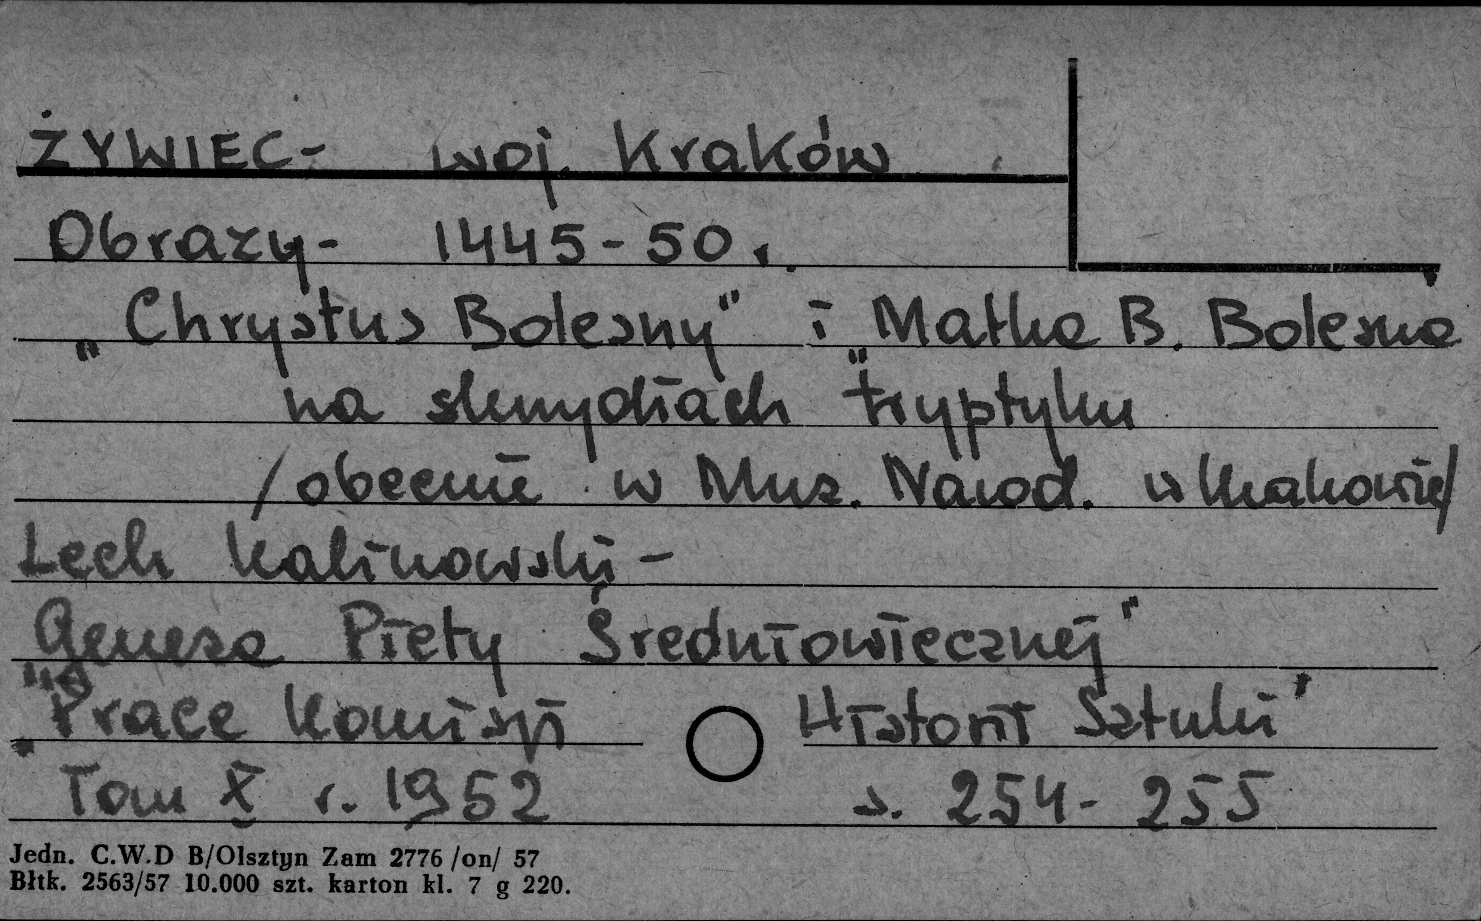 ŻYWIEC- woj. Kraków
Obrazy- 1445-50 r.
„Chrystus Bolesny" i „Matka B. Bolesna"
na skrzydłach tryptyku
/obecnie w Muz. Narod. w Krakowie/
Lech Kalinowski -
„Geneza Piety Średniowiecznej"
„Prace Komisji Historii Sztuki"
Tom X r. 1952 s. 254-255
Jedn. C.W.D B/Olsztyn Zam 2776 /on/ 57
Błtk. 2563/57 10.000 szt. karton kl. 7 g 220.